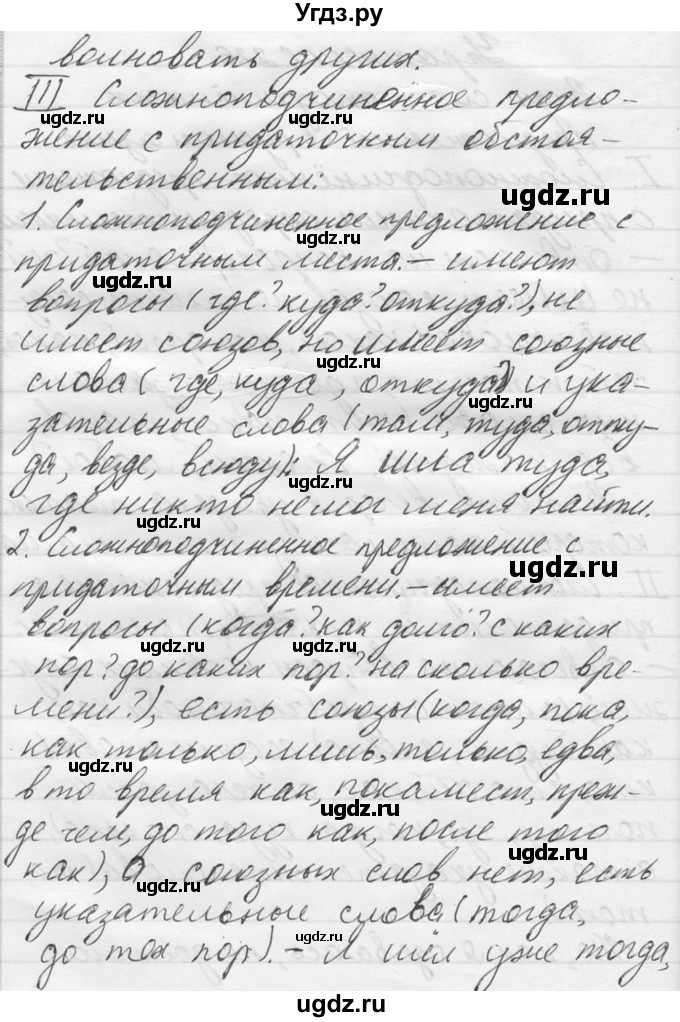 Угдз.ру
волновать других.
III Сложноподчиненное предло-
жение с придаточным обстоя-
тельственным:
1. Сложноподчиненное предложение с
придаточным места. – имеют
вопросы (где? куда? откуда?), не
имеет союзов, но имеет союзные
слова (где, куда, откуда) и ука-
зательные слова (там, туда, отку-
да, везде, всюду): Я шла туда,
где никто не мог меня найти.
2. Сложноподчиненное предложение с
придаточным времени. – имеет
вопросы (когда? как долго? с каких
пор? до каких пор? на сколько вре-
мени?), есть союзы (когда, пока,
как только, лишь, только, едва,
в то время как, покамест, преж-
де чем, до того как, после того
как), а союзных слов нет, есть
указательные слова (тогда,
до тех пор). – Я шёл уже тогда,
ugdz.ru